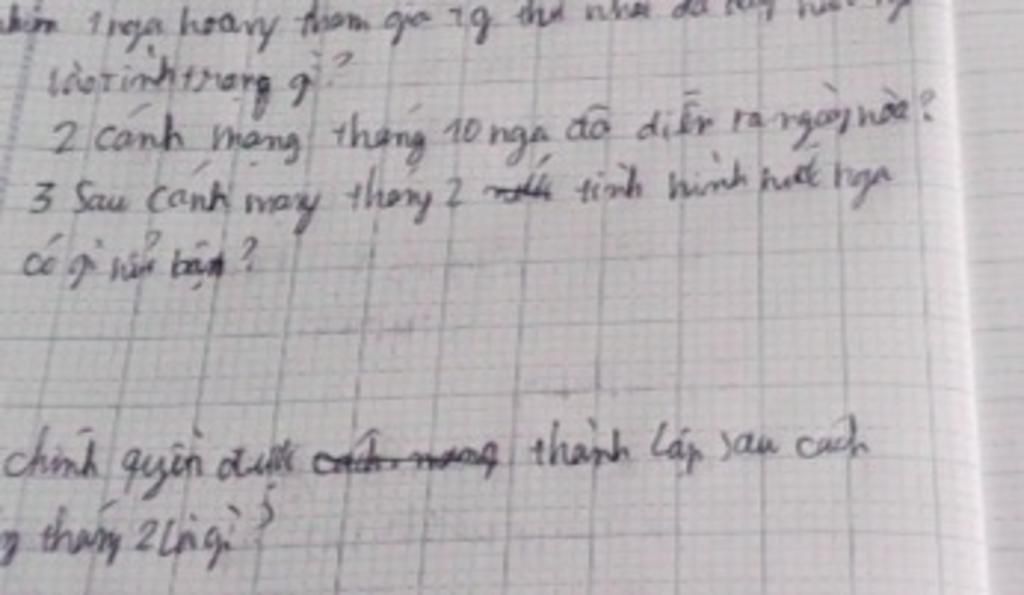 1 nga hoàng tham gia
vào tình trạng gì?
2 cánh mạng tháng 10 nga đã diễn ra ngày nào?
3 Sau cánh mạng tháng 2 tình hình nước nga
có gì nổi bật?
chính quyền được thành lập sau cách
tháng 2 là gì?